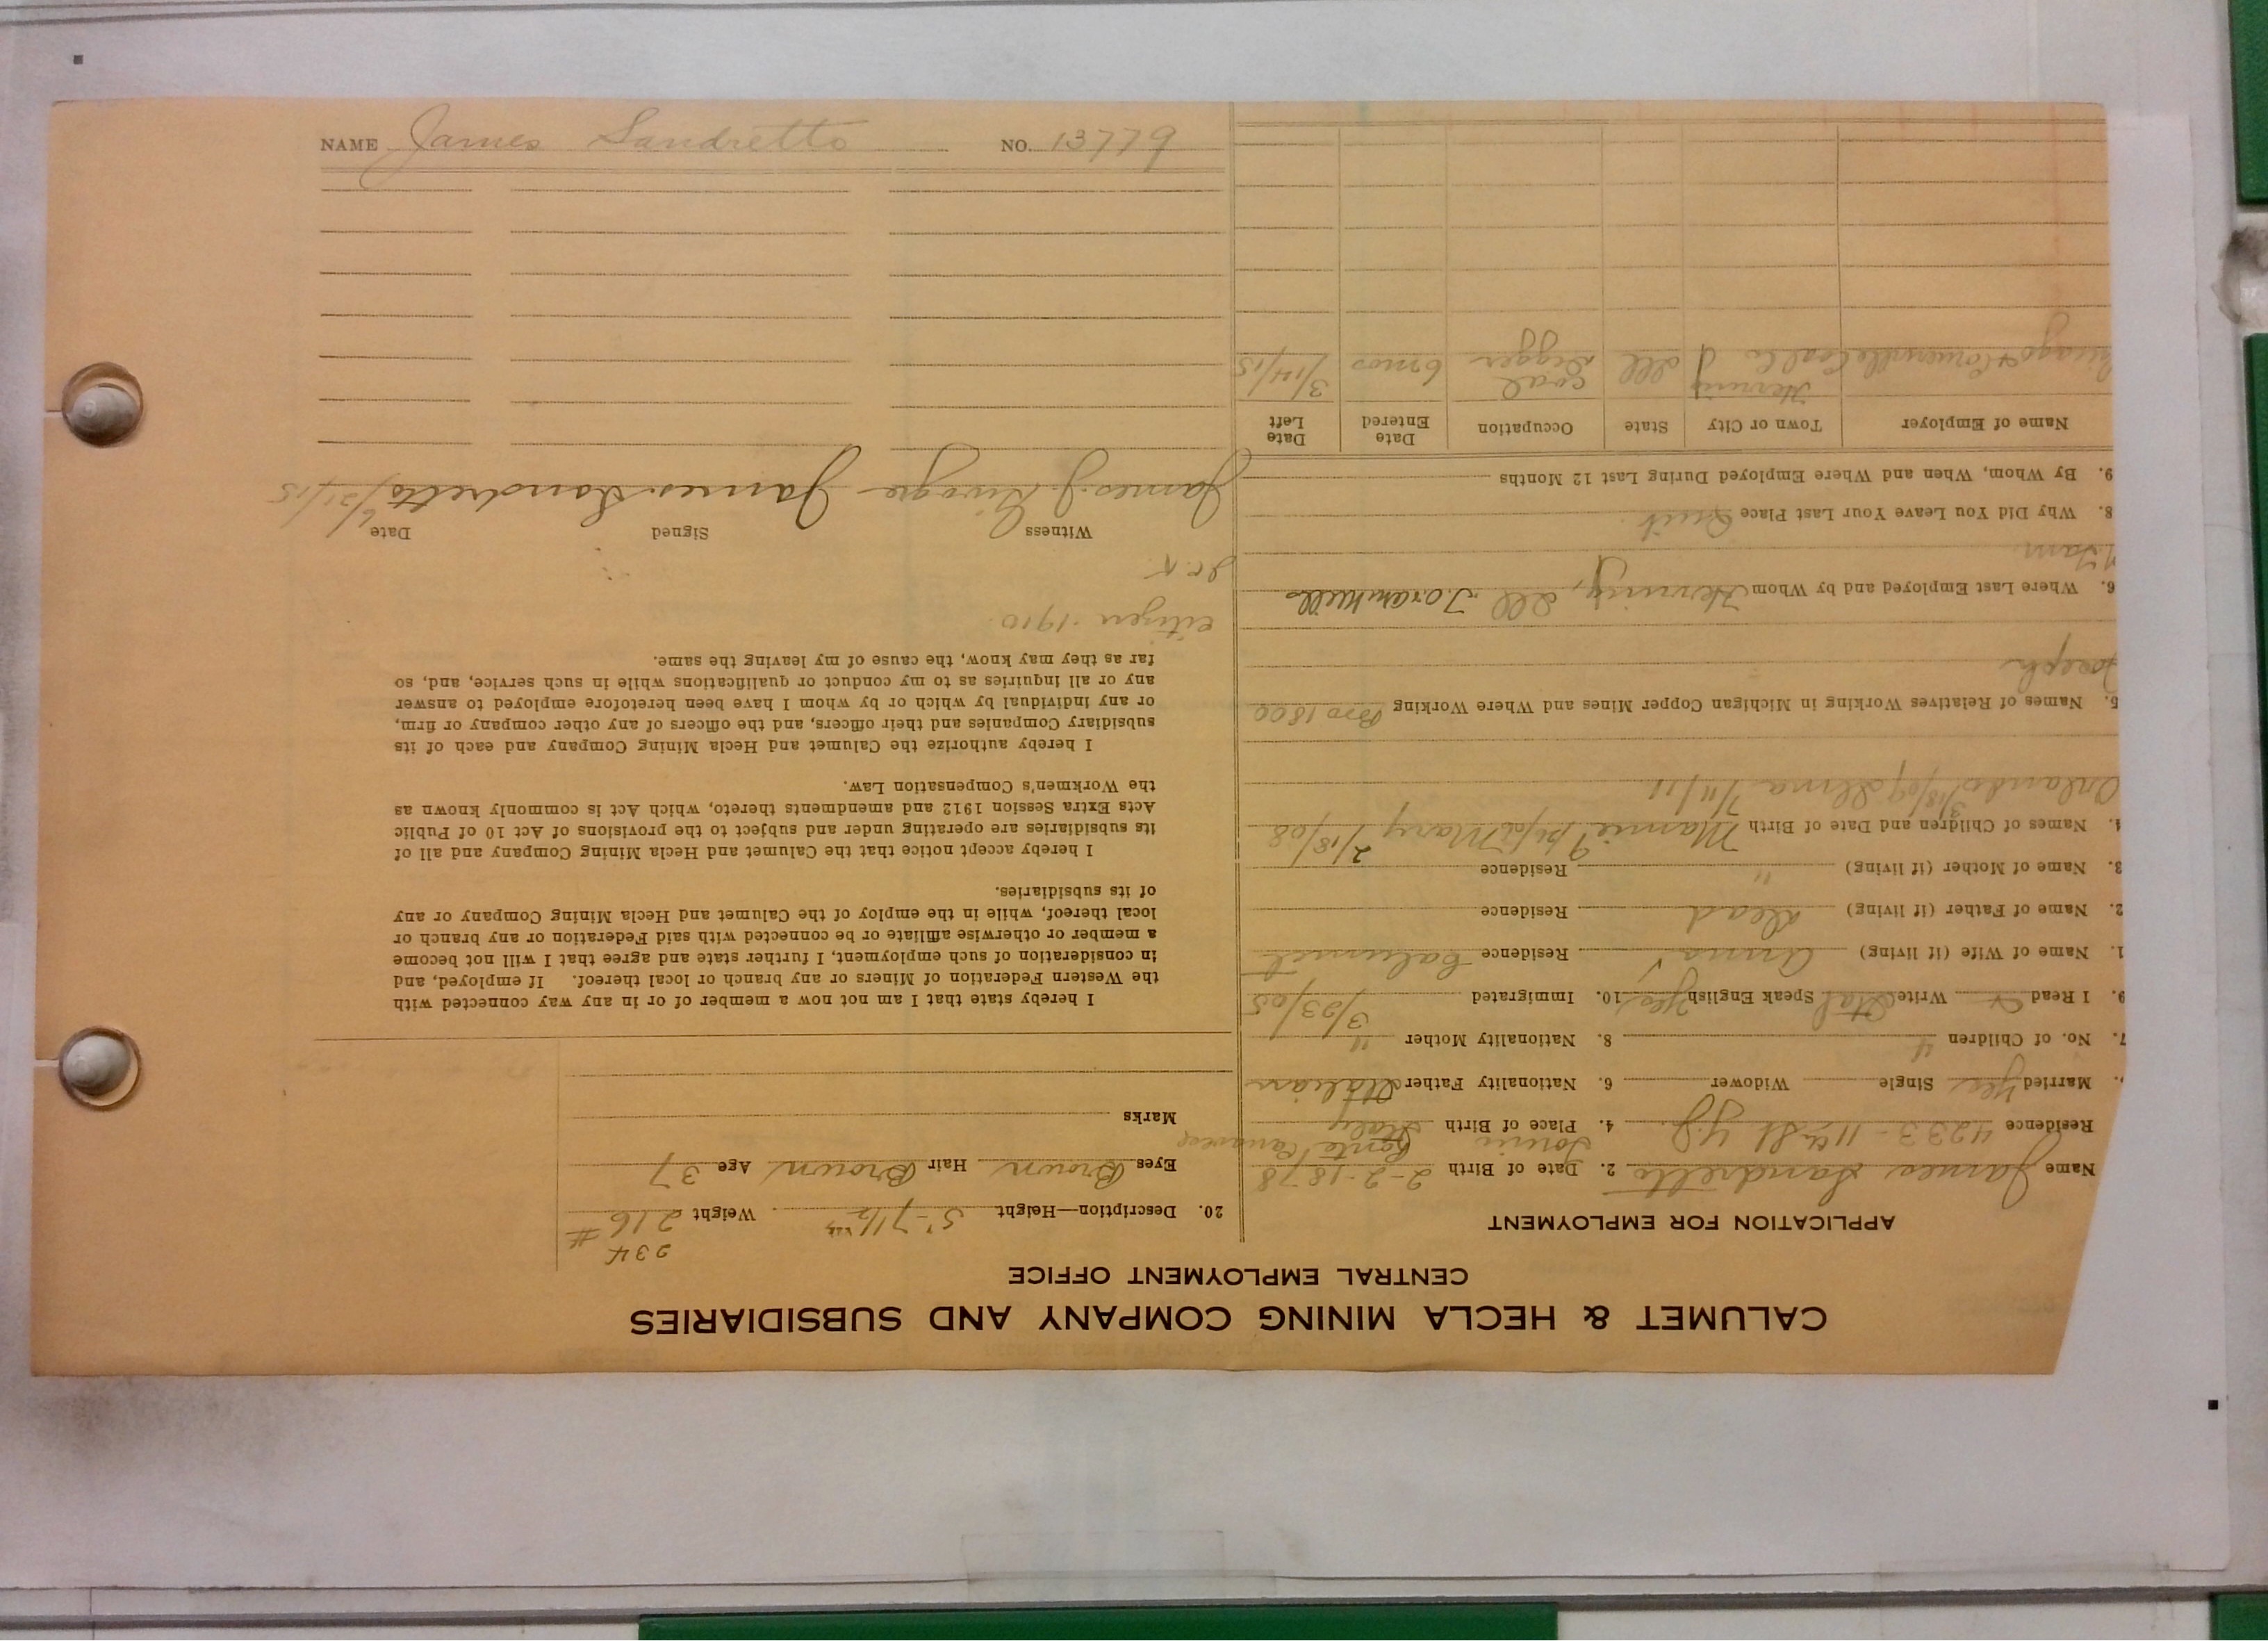 CALUMET & HECLA MINING COMPANY AND SUBSIDIARIES
CENTRAL EMPLOYMENT OFFICE
APPLICATION FOR EMPLOYMENT
Name James Sandretto 2. Date of Birth 2-2-1878
Residence 4233-11th St Y.J. 4. Place of Birth Italy
Married Yes Single Widower 6. Nationality Father Italian
7. No. of Children 4 8. Nationality Mother "
9. I Read Write Ital Speak English Yes 10. Immigrated 3/23/05
1. Name of Wife (if living) Anna Residence Calumet
2. Name of Father (if living) dead Residence
3. Name of Mother (if living) " Residence
4. Names of Children and Date of Birth Mamie Mary 2/18/08
Orlando 3/18/09 Elma 7/11/11
5. Names of Relatives Working in Michigan Copper Mines and Where Working Bro 1800
Joseph
6. Where Last Employed and by Whom Herring, Ill
8. Why Did You Leave Your Last Place Quit
9. By Whom, When and Where Employed During Last 12 Months
Name of Employer Town or City State Occupation Date Entered Date Left
Coal Co Herring Ill Coal Digger 6 mos 3/14/15
20. Description—Height 5'-7 1/2 Weight 216 #
234
Eyes Brown Hair Brown Age 37
Marks
I hereby state that I am not now a member of or in any way connected with
the Western Federation of Miners or any branch or local thereof. If employed, and
in consideration of such employment, I further state and agree that I will not become
a member or otherwise affiliate or be connected with said Federation or any branch or
local thereof, while in the employ of the Calumet and Hecla Mining Company or any
of its subsidiaries.
I hereby accept notice that the Calumet and Hecla Mining Company and all of
its subsidiaries are operating under and subject to the provisions of Act 10 of Public
Acts Extra Session 1912 and amendments thereto, which Act is commonly known as
the Workmen's Compensation Law.
I hereby authorize the Calumet and Hecla Mining Company and each of its
subsidiary Companies and their officers, and the officers of any other company or firm,
or any individual by which or by whom I have been heretofore employed to answer
any or all inquiries as to my conduct or qualifications while in such service, and, so
far as they may know, the cause of my leaving the same.
citizen 1910.
Witness Signed Date
James J. James Sandretto 6/21/15
NAME James Sandretto NO. 13779